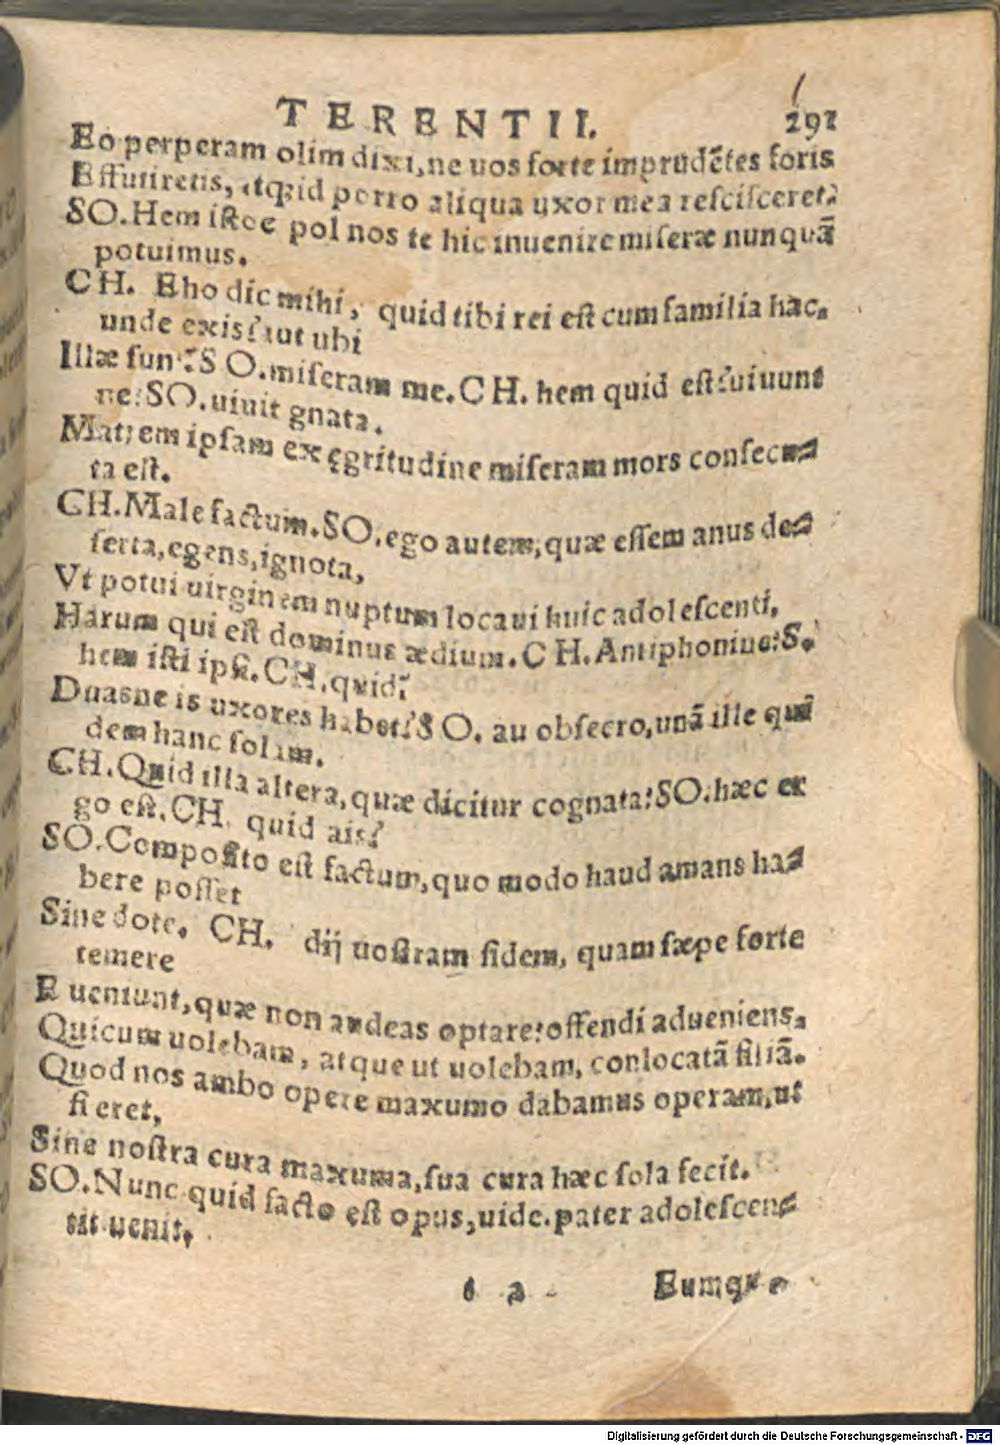 TERENTII. 291
Eo perperam olim dixi, ne uos forte imprudẽtes foris
Effutiretis, atq; id porro aliqua uxor mea rescisceret.
SO. Hem istoc pol nos te hic inuenire miseræ nunquã
potuimus.
CH. Eho dic mihi, quid tibi rei est cum familia hac,
unde exis? aut ubi
Illæ sunt? SO. miseram me. CH. hem quid est? uiuunt
ne? SO. uiuit gnata.
Matrem ipsam ex ęgritudine miseram mors consecu-
ta est.
CH. Male factum. SO. ego autem, quæ essem anus de-
serta, egens, ignota,
Vt potui uirginem nuptum locaui huic adolescenti,
Harum qui est dominus ædium. CH. Antiphonine? S.
hem isti ipsi. CH. quid?
Duasne is uxores habet? SO. au obsecro, unã ille qui
dem hanc solam.
CH. Quid illa altera, quæ dicitur cognata? SO. hæc er
go est. CH. quid ais?
SO. Composito est factum, quo modo haud amans ha-
bere posset
Sine dote. CH. dij uostram fidem, quam sæpe forte
temere
Eueniunt, quæ non audeas optare? offendi adueniens,
Quicum uolebam, atque ut uolebam, conlocatã filiã.
Quod nos ambo opere maxumo dabamus operam, ut
fieret,
Sine nostra cura maxuma, sua cura hæc sola fecit.
SO. Nunc quid facto est opus, uide. pater adolescen-
tis uenit,
2 Eumque
Digitalisierung gefördert durch die Deutsche Forschungsgemeinschaft - DFG